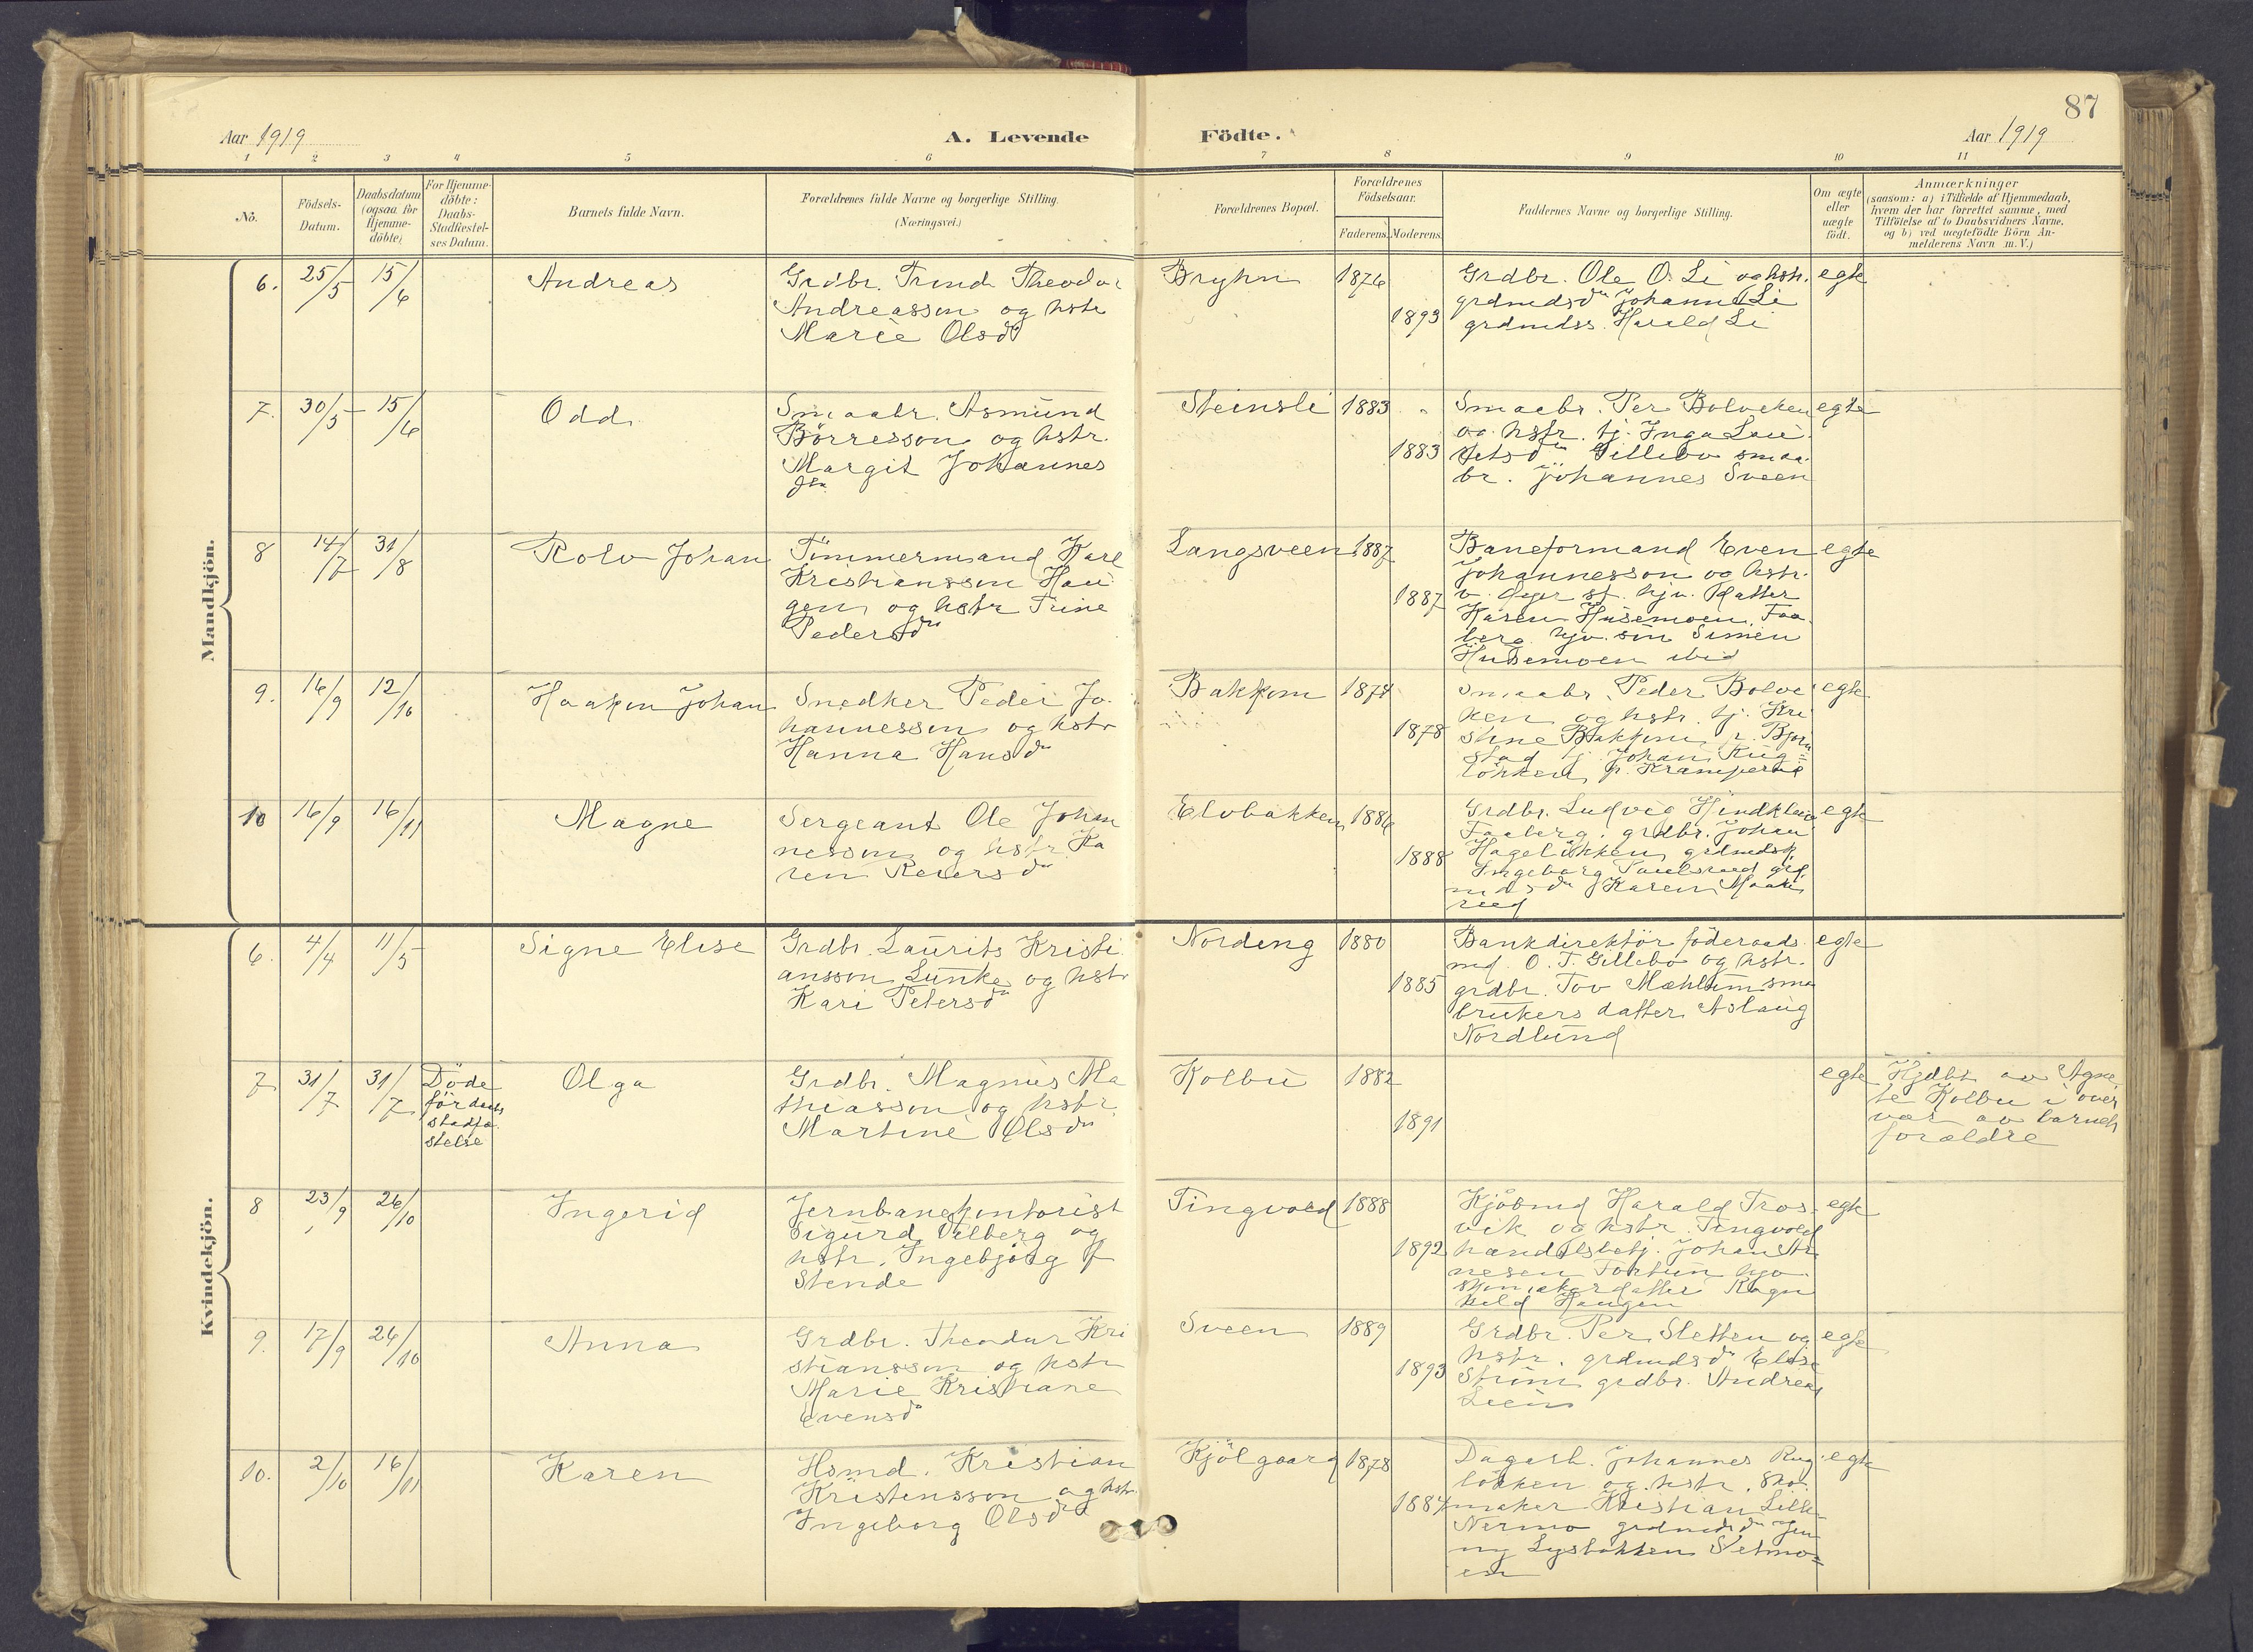 87
Aar 1919
A. Levende Födte.
Aar 1919
1 2 3 4 5 6 7 8 9 10 11
No.
Födsels-
Datum.
Daabsdatum
(ogsaa for
Hjemme-
döbte)
For Hjemme-
döbte:
Daabs-
Stadfæstel-
ses Datum.
Barnets fulde Navn.
Forældrenes fulde Navne og borgerlige Stilling.
(Næringsvei.)
Forældrenes Bopæl.
Forældrenes
Födselsaar.
Faderens. Moderens.
Faddernes Navne og borgerlige Stilling.
Om ægte
eller
uægte
födt.
Anmærkninger
(saasom: a) i Tilfælde af Hjemmedaab,
hvem der har forrettet samme, med
Tilföielse af to Daabsvidners Navne,
og b) ved uægtefödte Börn An-
melderens Navn m. V.)
Mandkjön.
6. 25/5 15/6
Andreas
Grdbr. Trond Theodor
Andreasson og hstr
Marie Olsdr
Bryhn
1876
1893
Grdbr. Ole O. Li og hstr.
grdmdsdr Johanne Li
grdmdss. Harald Li
egte
7. 30/5 15/6
Odd
Smaabr. Asmund
Börresson og hstr.
Margit Johannes
dtr.
Steinsli
1883
1883
Smaabr. Per Bolveken
og hstr. tj. Inga Lau
Gillebo smaa-
br. Johannes Sveen
egte
8 14/7 31/8
Rolv Johan
Tömmermand Karl
Kristiansson Hau
gen og hstr Trine
Pedersdr
Langsveen
1887
1887
Baneformand Even
Johannesson og hstr.
v. Öyer st. hjv. datter
Karen Husemoen, Faa
berg hjv. sön Simen
Husemoen ibid
egte
9. 16/9 12/10
Haakon Johan
Snedker Peder Jo-
hannesson og hstr
Hanna Hansdr
Bakkom
1874
1878
Smaabr. Peder Bolve
ken og hstr. tj. Kri
stine Bakkom, Björn
stad tj. Johan Rug=
lökken p. Kramperud
egte
10 16/9 16/11
Magne
Sergeant Ole Johan
nesson og hstr Ka
ren Reiersdr
Elvbakken
1886
1888
Grdbr. Ludvig Hindklev
Faaberg, grdbr. Johan
Hagelökken grdmdsk.
Ingeborg Paulsrud grd
mdsdr Karen Maake
rud
egte
Kvindekjön.
6. 4/4 11/5
Signe Elise
Grdbr. Laurits Kristi
ansson Lunke og hstr
Kari Petersdr
Nordeng
1880
1885
Bankdirektör föderaads
md. O. T. Gillebo og hstr.
grdbr. Tov Mæhlum sma
brukers datter Aslaug
Nordlund
egte
7 31/7 31/7
Döde
för daabs
stadfæ
stelse
Olga
Grdbr. Magnus Ma
thiasson og hstr.
Martine Olsdr
Kolbu
1882
1891
egte
Hjdbt av Agne
te Kolbu i over
vær av barnets
forældre
8 23/9 26/10
Ingerid
Jernbanekontorist
Sigurd Vilberg og
hstr. Ingebjörg f
Stende
Tingvold
1888
1892
Kjöbmd Harald Tros
vik og hstr. Tingvold
handelsbetj. Johan Ar
nesen Fortun hjv.
skomakerdatter Ragn
hild Haugen
egte
9. 17/9 26/10
Anna
Grdbr. Theodor Kri
stiansson og hstr
Marie Kristiane
Evensdr
Sveen
1889
1893
Grdbr. Per Sletten og
hstr. grdmdsdr Elise
Strum grdbr. Andreas
Lien
egte
10. 2/10 16/11
Karen
Hsmd. Kristian
Kristensson og hstr.
Ingeborg Olsdr
Kjölgaard
1878
1884
Dagarb. Johannes Rug
lökken og hstr. Sko-
maker Kristian Lille
Nermo grdmdsdr Jen
ny Lysbakken Sletmo=
en
egte